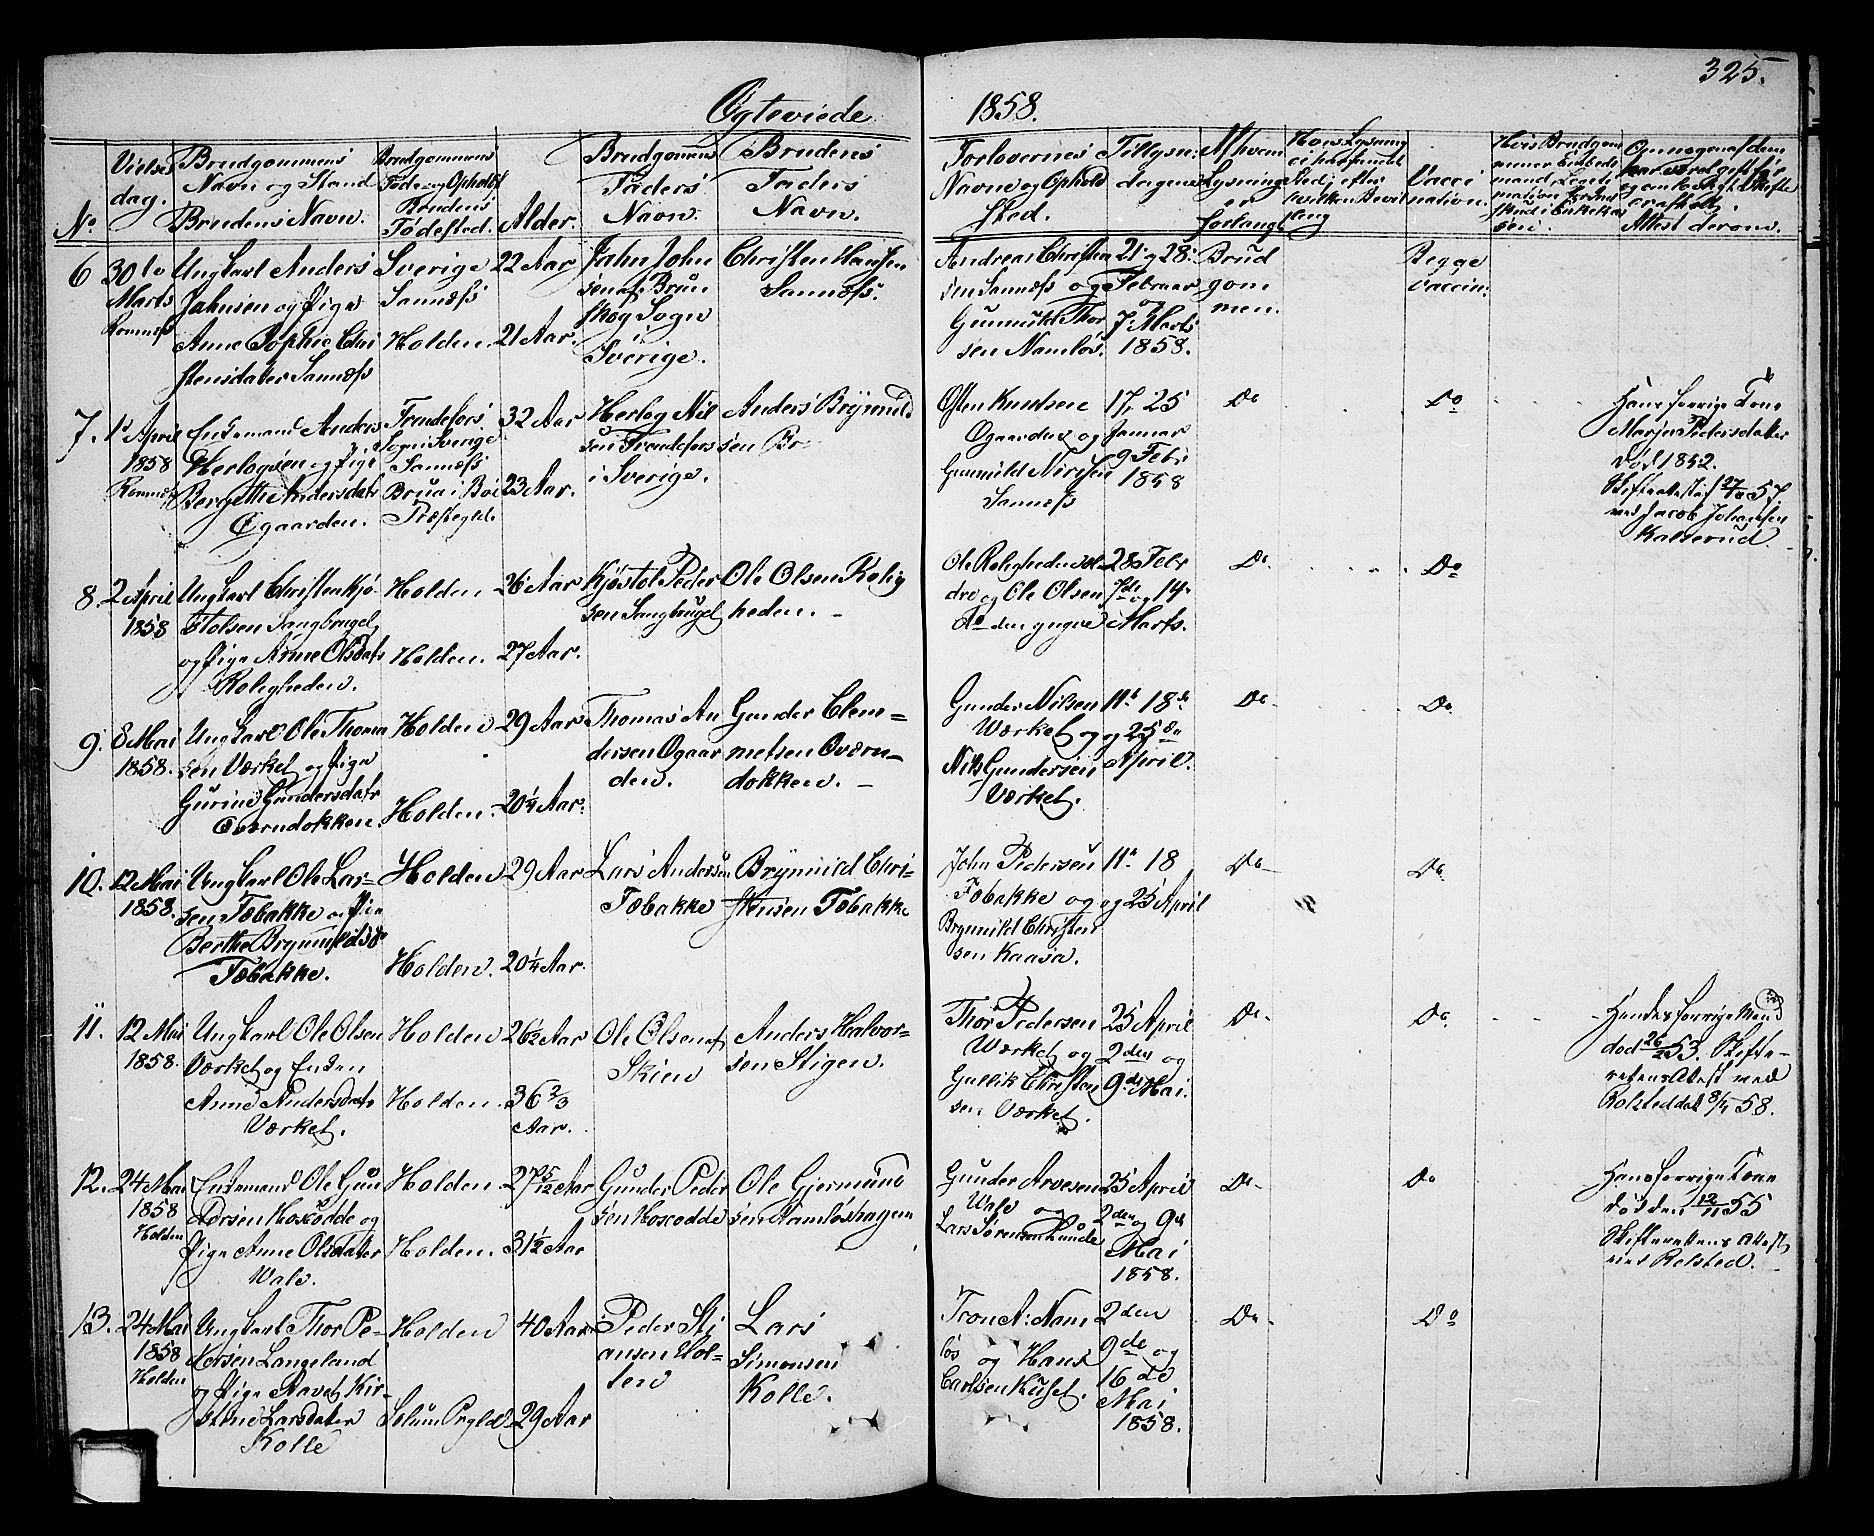 325.
Ægteviede 1858.
No
Vielses
dag.
Brudgommens
Navn og Stand
Brudens Navn.
Brudgommens
Føde og Opholdst
Brudens
Fødested.
Alder.
Brudgomens
Faders
Navn.
Brudens
Faders
Navn.
Forlovernes
Navne og Ophold
sted.
Tillysn.
dagene
Af hvem
Lysning
er
forlangt
Hvis Lysning
ei har fundet
Sted, efter
hvilken Bevil
ling
Vacci
nation.
Hvis Brudgom
Attest derom.
6
30te
Marts
Romnæs
Ungkarl Anders
Jahnsen og Pige
Anne Sophie Chri
stensdater Sannæss
Sverige
Sannæss
Holden
22 Aar
21 Aar.
Jahn John
sen af Brun
skog Sogn
i
Sverige.
Christen Hansen
Sannæss.
Andreas Christen
sen Sannæss og
Gunnuld Thor
sen Namløs.
21 og 28
Februar
og
7 Marts
1858.
Brud
gom
men.
Begge
vaccin:
7.
1st April
1858
Romnæs
Enkemand Anders
Herlogsen og Pige
Bergethe Andersdatr
Øgaarden.
Sogn Sverige
Sannæss
Brua i Bøe
Præstegld.
32 Aar
23 Aar.
Herlog Nil
sen
i Sverige.
Anders Brynnild
sen Br
Osten Knudsen
Øgaarden og
Gunnuld
Sannæss
17, 25
Januar
9 Febr
1858
Do
Do
Hans forrige Kone
Marja Pedersdater
død 1852.
Skifteattest 27/10 57
ved Jacob Johansen
Kalserud.
8.
2 April
1858
Ungkarl Christen Kjø-
stolsen Langbrugd
og Pige Anne Olsdatr
Roligheden.
Holden
Holden.
26 Aar
27 Aar.
Kjøstol Peder
sen Langbrugd
Ole Olsen Rolig
heden. -
Ole Roligheden æl
dre og Ole Olsen
do den yngre
28 Febr
7de og 14
Marts.
Do
Do
9.
8 Mai
1858.
Ungkarl Ole Thoma
sen Værket og Pige
Gurine Gundersdatr
Oværndokken.
Holden
Holden.
29 Aar
20 1/4 Aar.
Thomas An
dersen Øgaar
den.
Gunder Clem=
metsen Oværn=
dokken. -
Gunder Nilsen
Værket og
Nils Gundersen
Værket.
11te 18de
og 25de
April.
Do
Do
10.
12 Mai
1858.
Ungkarl Ole Lar-
sen Tøbakke og Pige
Berthe Brynnildsdr
Tøbakke.
Holden
Holden.
29 Aar
20 1/4 Aar.
Lars Andersen
Tøbakke
Brynnild Chri-
stensen Tøbakke
John Pedersen
Tøbakke og
Brynnild Christen
sen Kaasa.
11te 18
og 25 April
Do
Do
11.
12 Mai
1858.
Ungkarl Ole Olsen
Værket og Enken
Anne Andersdatr
Værket.
Holden
Holden.
26 1/2 Aar
36 2/3
Aar.
Ole Olsen af
Skien
Anders Halvor-
sen Stigen.
Thor Pedersen
Værket og
Gullik Christen
sen Værket.
25 April
2den og
9de Mai.
Do
Do
Hendes forrige Mand
død 26/2 53. Skifte-
rettens Attest med
Rolsted dat 8/4 58.
12.
24 Mai
1858
Holden
Enkemand Ole Gun
dersen Hoxodde og
Pige Anne Olsdater
Wale.
Holden
Holden.
27 5/12 Aar
31 1/2 Aar
Gunder Peder
sen Hoxodde
Ole Gjermund
sen Namløshagen
Gunder Arvesen
Wale og
Lars Sørensen Hunde
25 April
2den og 9de
Mai
1858.
Do
Do
Hans forrige Kone
død den 12/11 55
Skifterettens Attest
ved Rolsted.
13.
24 Mai
1858
Holden
Ungkarl Thor Pe-
dersen Langeland
og Pige Aavet Kir-
stine Larsdater
Kolle
Holden
Solum Prgld.
40 Aar
29 Aar
Peder Sti
ansen Hol-
ten
Lars
Simonsen
Kolle.
Tron A: Nam
løs og Hans
Carlsen Huset.
2den
9de og
16de
Mai
1858.
Do
Do